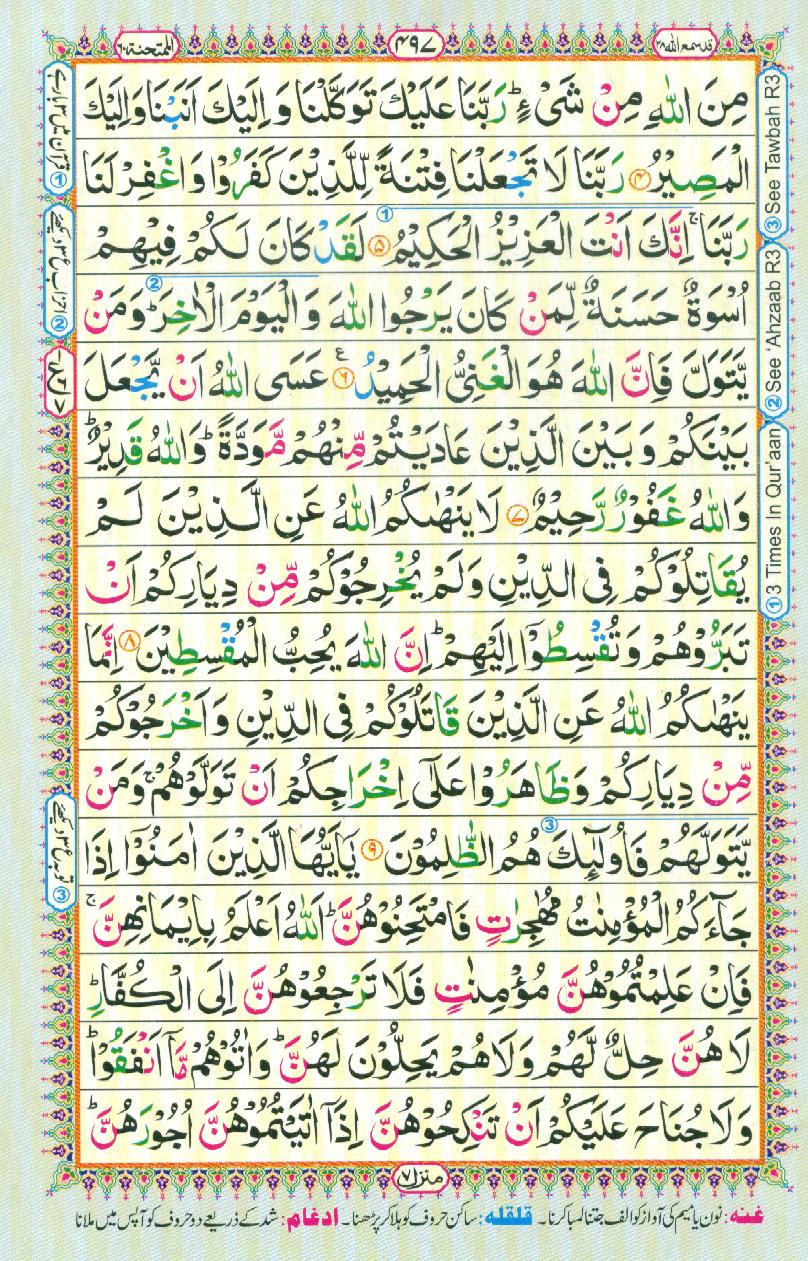 قد سمع الله ۲۸
۴۹۷
الممتحنة ۶۰
مِنَ اللّٰهِ مِنْ شَیْءٍ ؕ رَبَّنَا عَلَیْكَ تَوَكَّلْنَا وَ اِلَیْكَ اَنَبْنَا وَاِلَیْكَ
الْمَصِیْرُ ۴ رَبَّنَا لَا تَجْعَلْنَا فِتْنَةً لِّلَّذِیْنَ كَفَرُوْا وَاغْفِرْ لَنَا
رَبَّنَا ۚ اِنَّكَ اَنْتَ الْعَزِیْزُ الْحَكِیْمُ ۵ لَقَدْ كَانَ لَكُمْ فِیْهِمْ
اُسْوَةٌ حَسَنَةٌ لِّمَنْ كَانَ یَرْجُوا اللّٰهَ وَالْیَوْمَ الْاٰخِرَ ؕ وَمَنْ
یَّتَوَلَّ فَاِنَّ اللّٰهَ هُوَ الْغَنِیُّ الْحَمِیْدُ ۶ ع عَسَی اللّٰهُ اَنْ یَّجْعَلَ
بَیْنَكُمْ وَبَیْنَ الَّذِیْنَ عَادَیْتُمْ مِّنْهُمْ مَّوَدَّةً ؕ وَاللّٰهُ قَدِیْرٌ ؕ
وَاللّٰهُ غَفُوْرٌ رَّحِیْمٌ ۷ لَا یَنْهٰىكُمُ اللّٰهُ عَنِ الَّذِیْنَ لَمْ
یُقَاتِلُوْكُمْ فِی الدِّیْنِ وَلَمْ یُخْرِجُوْكُمْ مِّنْ دِیَارِكُمْ اَنْ
تَبَرُّوْهُمْ وَتُقْسِطُوْۤا اِلَیْهِمْ ؕ اِنَّ اللّٰهَ یُحِبُّ الْمُقْسِطِیْنَ ۸ اِنَّمَا
یَنْهٰىكُمُ اللّٰهُ عَنِ الَّذِیْنَ قَاتَلُوْكُمْ فِی الدِّیْنِ وَاَخْرَجُوْكُمْ
مِّنْ دِیَارِكُمْ وَظَاهَرُوْا عَلٰۤی اِخْرَاجِكُمْ اَنْ تَوَلَّوْهُمْ ۚ وَمَنْ
یَّتَوَلَّهُمْ فَاُولٰٓئِكَ هُمُ الظّٰلِمُوْنَ ۹ یٰۤاَیُّهَا الَّذِیْنَ اٰمَنُوْۤا اِذَا
جَآءَكُمُ الْمُؤْمِنٰتُ مُهٰجِرٰتٍ فَامْتَحِنُوْهُنَّ ؕ اَللّٰهُ اَعْلَمُ بِاِیْمَانِهِنَّ ۚ
فَاِنْ عَلِمْتُمُوْهُنَّ مُؤْمِنٰتٍ فَلَا تَرْجِعُوْهُنَّ اِلَی الْكُفَّارِ ؕ
لَا هُنَّ حِلٌّ لَّهُمْ وَلَا هُمْ یَحِلُّوْنَ لَهُنَّ ؕ وَاٰتُوْهُمْ مَّاۤ اَنْفَقُوْا ؕ
وَلَا جُنَاحَ عَلَیْكُمْ اَنْ تَنْكِحُوْهُنَّ اِذَاۤ اٰتَیْتُمُوْهُنَّ اُجُوْرَهُنَّ ؕ
منزل ۷
غنه: نون یا میم کی آواز کو الف جتنا لمبا کرنا۔ قلقله: ساکن حروف کو ہلا کر پڑھنا۔ ادغام: شد کے ذریعے دو حروف کو آپس میں ملانا
③ See Tawbah R3
② See 'Ahzaab R3
① 3 Times In Qur'aan